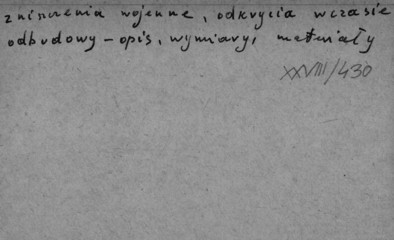 zniszczenia wojenne, odkrycia w czasie
odbudowy – opis, wymiary, materiały
XXVIII/430